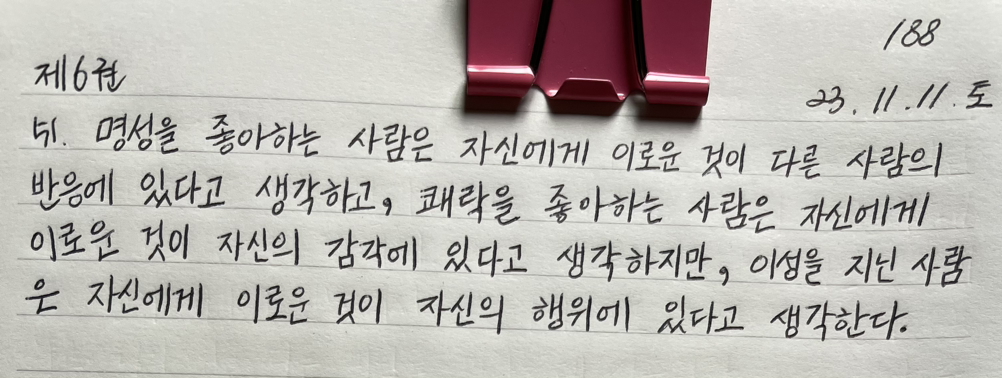 188
제6권
23.11.11.토
51. 명성을 좋아하는 사람은 자신에게 이로운 것이 다른 사람의
반응에 있다고 생각하고, 쾌락을 좋아하는 사람은 자신에게
이로운 것이 자신의 감각에 있다고 생각하지만, 이성을 지닌 사람
은 자신에게 이로운 것이 자신의 행위에 있다고 생각한다.